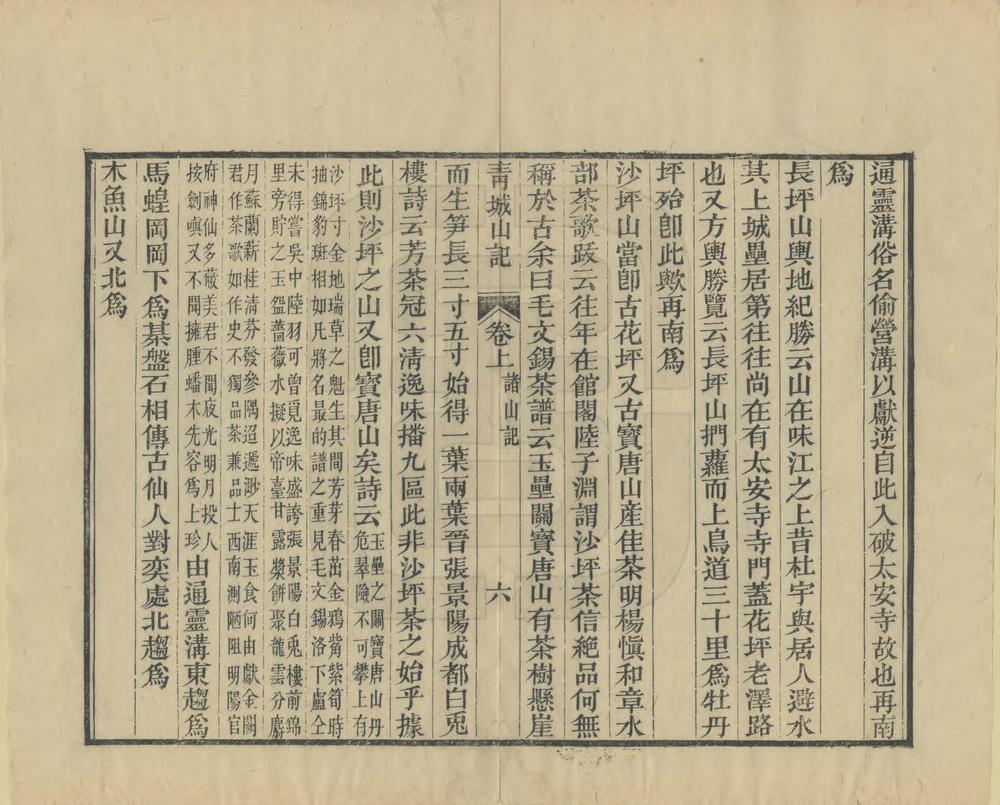 通靈溝俗名偷營溝以獻逆自此入破太安寺故也再南
爲
長坪山輿地紀勝云山在味江之上昔杜宇與居人避水
其上城壘居第往往尚在有太安寺寺門蓋花坪老澤路
也又方輿勝覽云長坪山捫蘿而上鳥道三十里爲牡丹
坪殆卽此歟再南爲
沙坪山當卽古花坪又古寶唐山產佳茶明楊愼和章水
部茶歌跋云往年在館閣陸子淵謂沙坪茶信絕品何無
稱於古余曰毛文錫茶譜云玉壘關寶唐山有茶樹懸崖
青城山記 卷上 諸山記 六
而生笋長三寸五寸始得一葉兩葉晉張景陽成都白兎
樓詩云芳茶冠六淸逸味播九區此非沙坪茶之始乎據
此則沙坪之山又卽寶唐山矣詩云
玉壘之關寶唐山丹
危翠險不可攀上有
沙坪寸金地瑞草之魁生其間芳芽春茁金鴉觜紫筍時
抽錦豹斑相如凡將名最的譜之重見毛文錫洛下盧仝
未得嘗吳中陸羽可曾覓逸味盛誇張景陽白兎樓前錦
里旁貯之玉盌薔薇水擬以帝臺甘露漿餅聚龍雲分麝
月蘇蘭薪桂淸芬發參隅迢遞渺天涯玉食何由獻金闕
君作茶歌如作史不獨品茶兼品士西南測陋阻明陽官
府神仙多蔽美君不聞夜光明月投人
按劍嗔又不聞擁腫蟠木先容爲上珍
由通靈溝東趨爲
馬蝗岡岡下爲棊盤石相傳古仙人對奕處北趨爲
木魚山又北爲